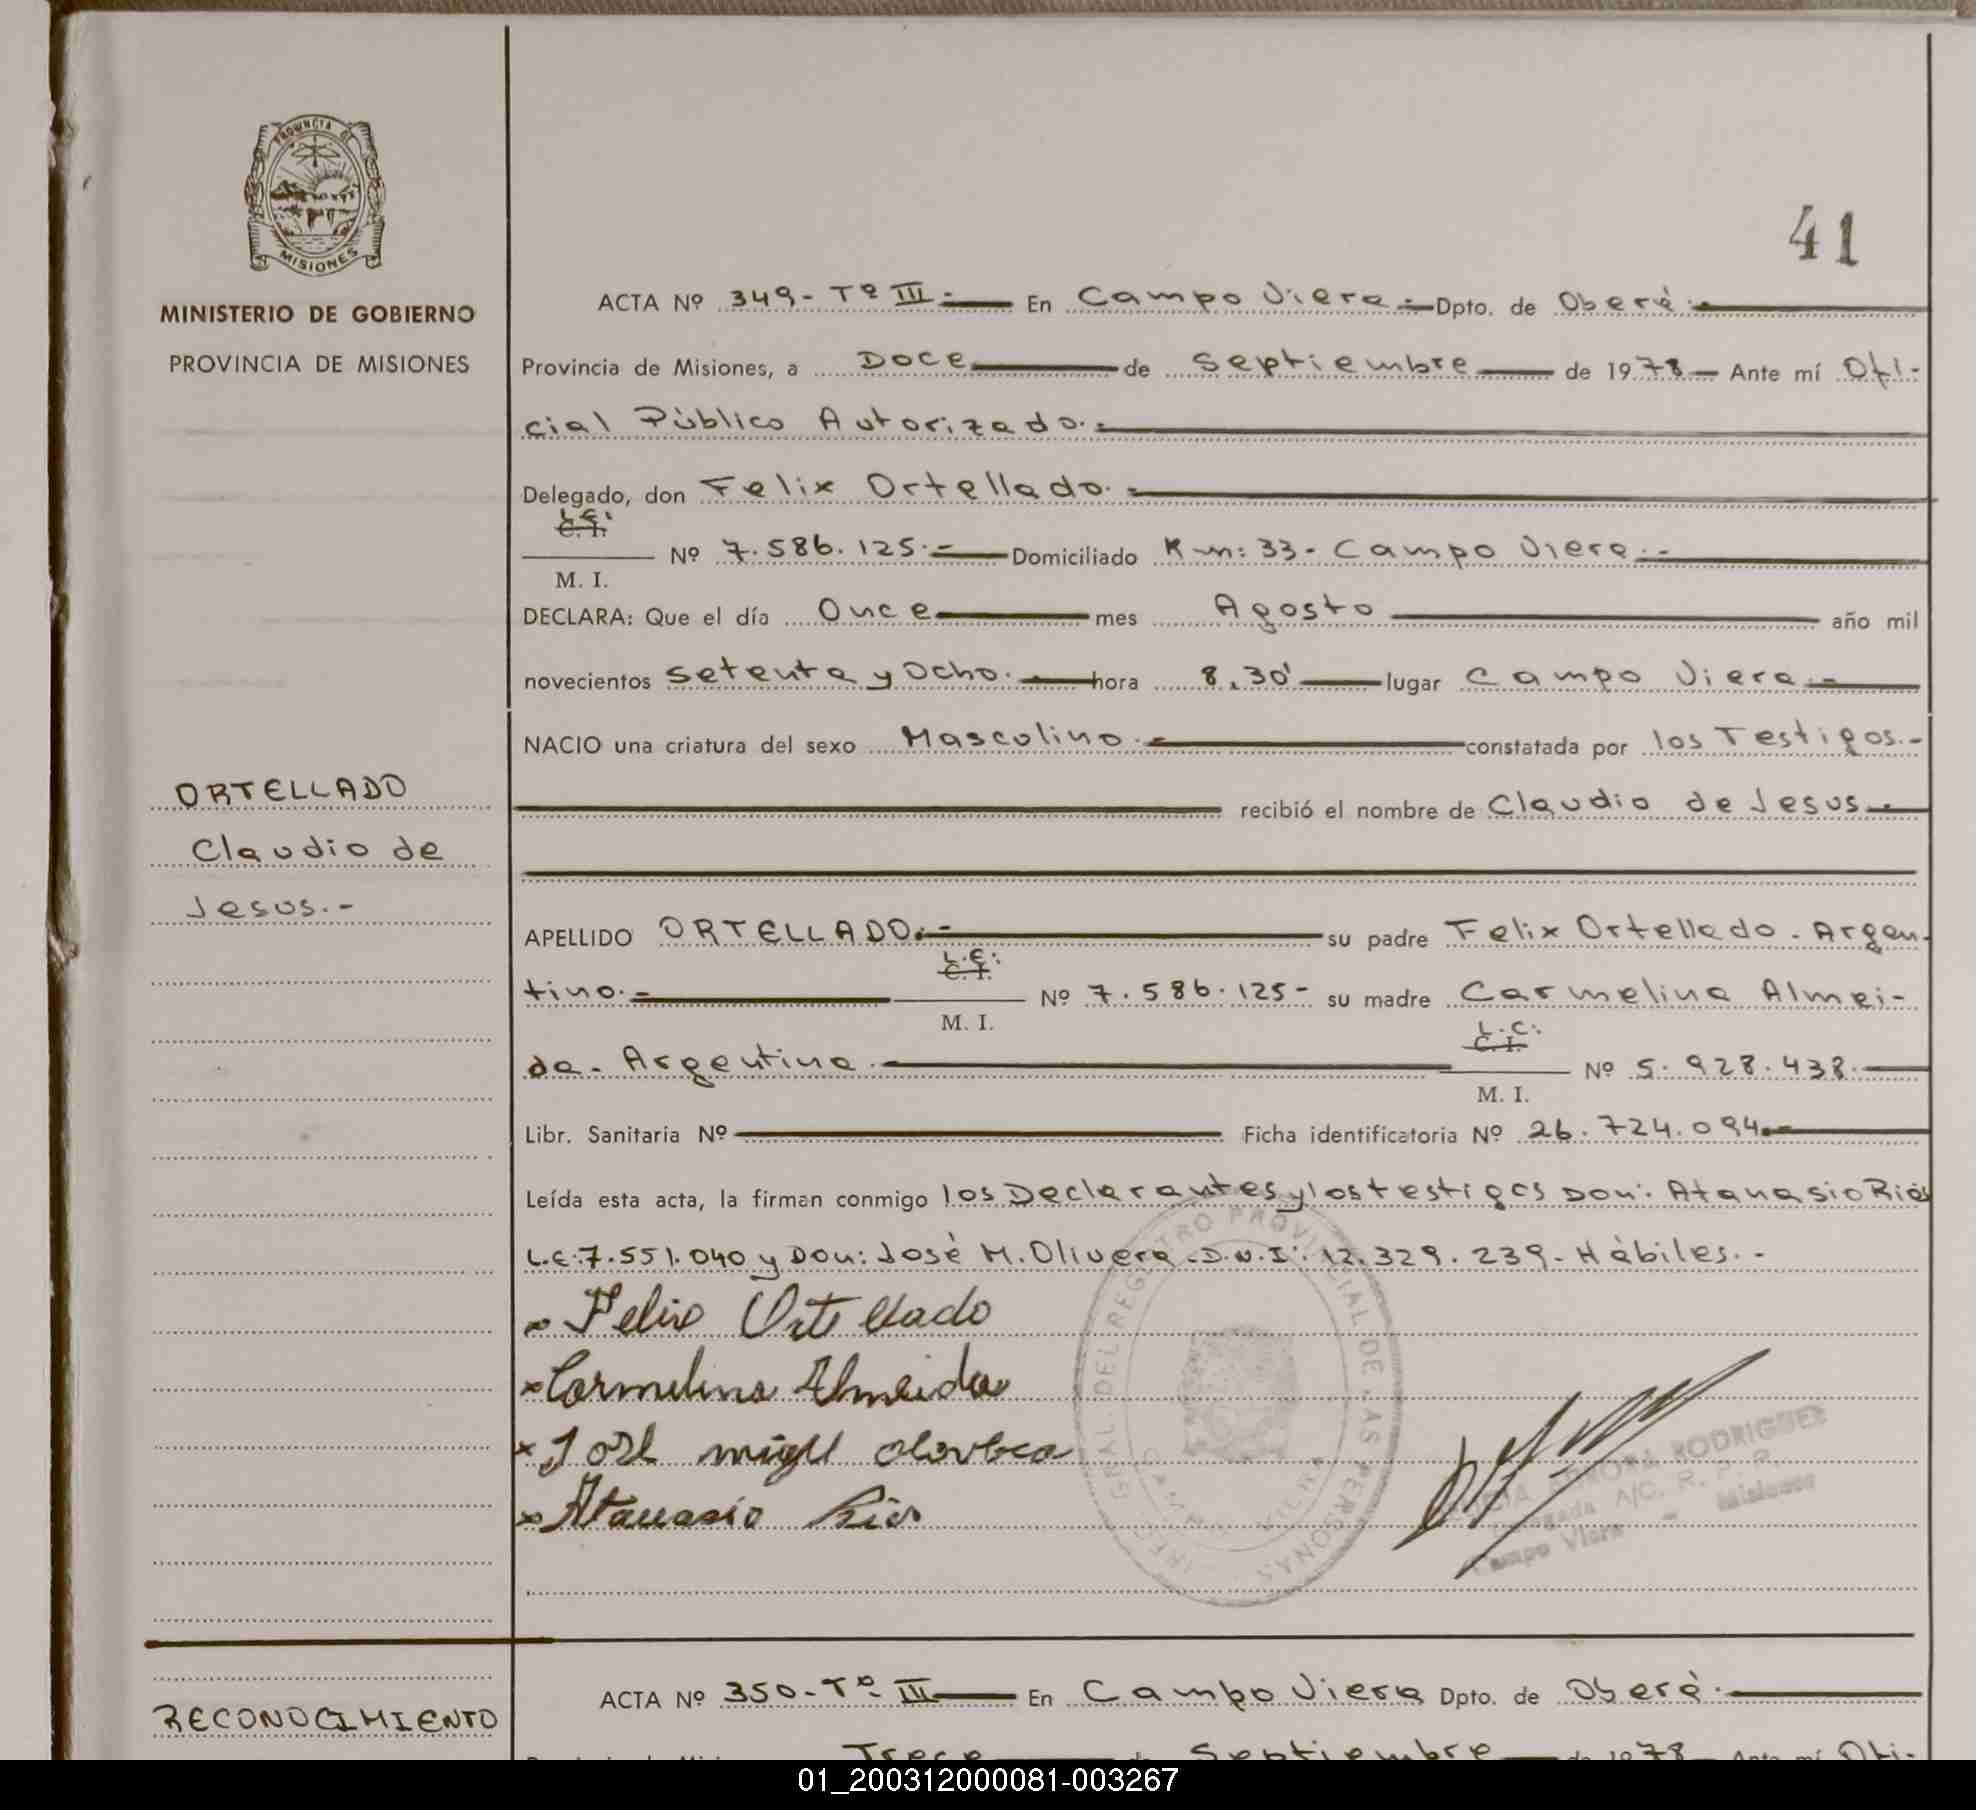 PROVINCIA DE
MISIONES
MINISTERIO DE GOBIERNO
PROVINCIA DE MISIONES
41
ACTA Nº 349- Tº III.- En Campo Viera.- Dpto. de Oberá.-
Provincia de Misiones, a Doce de Septiembre de 1978 Ante mí Ofi-
cial Público Autorizado.-
Delegado, don Felix Ortellado.-
L.E:
C. I.
Nº 7.586.125.- Domiciliado Km: 33- Campo Viera.-
M. I.
DECLARA: Que el día Once mes Agosto año mil
novecientos Setenta y Ocho. hora 8,30' lugar Campo Viera.-
NACIO una criatura del sexo Masculino.- constatada por los Testigos.-
recibió el nombre de Claudio de Jesus.-
ORTELLADO
Claudio de
Jesus.-
APELLIDO ORTELLADO.- su padre Felix Ortellado. Argen-
L.E:
C. I.
tino.- Nº 7.586.125- su madre Carmelina Almei-
M. I.
L.C:
C. I.
da. Argentina. Nº 5.928.438.
M. I.
Libr. Sanitaria Nº Ficha identificatoria Nº 26.724.094.-
Leída esta acta, la firman conmigo los Declarantes y los testigos Don: Atanasio Rios
L.E:7.551.040 y Don: José M. Olivera.D.N.I: 12.329.239- Hábiles.-
x Felix Ortellado
x Carmelina Almeida
x José
x Atanasio Rios
GRAL. DEL REGISTRO PROVINCIAL DE LAS PERSONAS
CAMPO VIERA
RODRIGUEZ
Delegada A/C. R. P. P.
Campo Viera - Misiones
ACTA Nº 350-Tº- III En Campo Viera Dpto. de Oberá.
RECONOCIMIENTO
Trece de Septiembre de 1978 Ante mí Ofi-
01_200312000081-003267